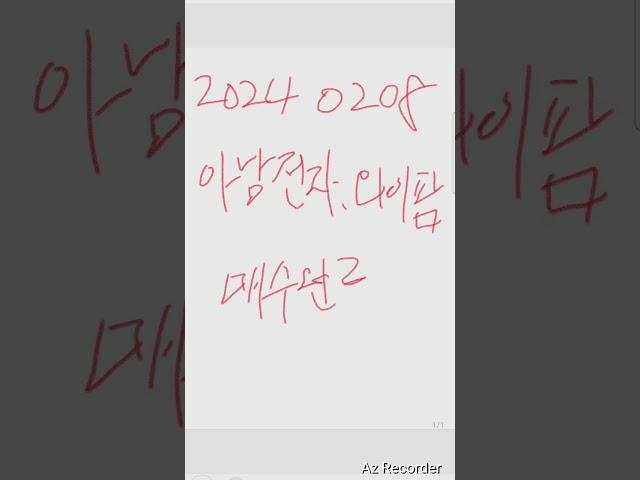 2024 0208
아남전자, 와이팜
매수완ㄹ
1/1
Az Recorder